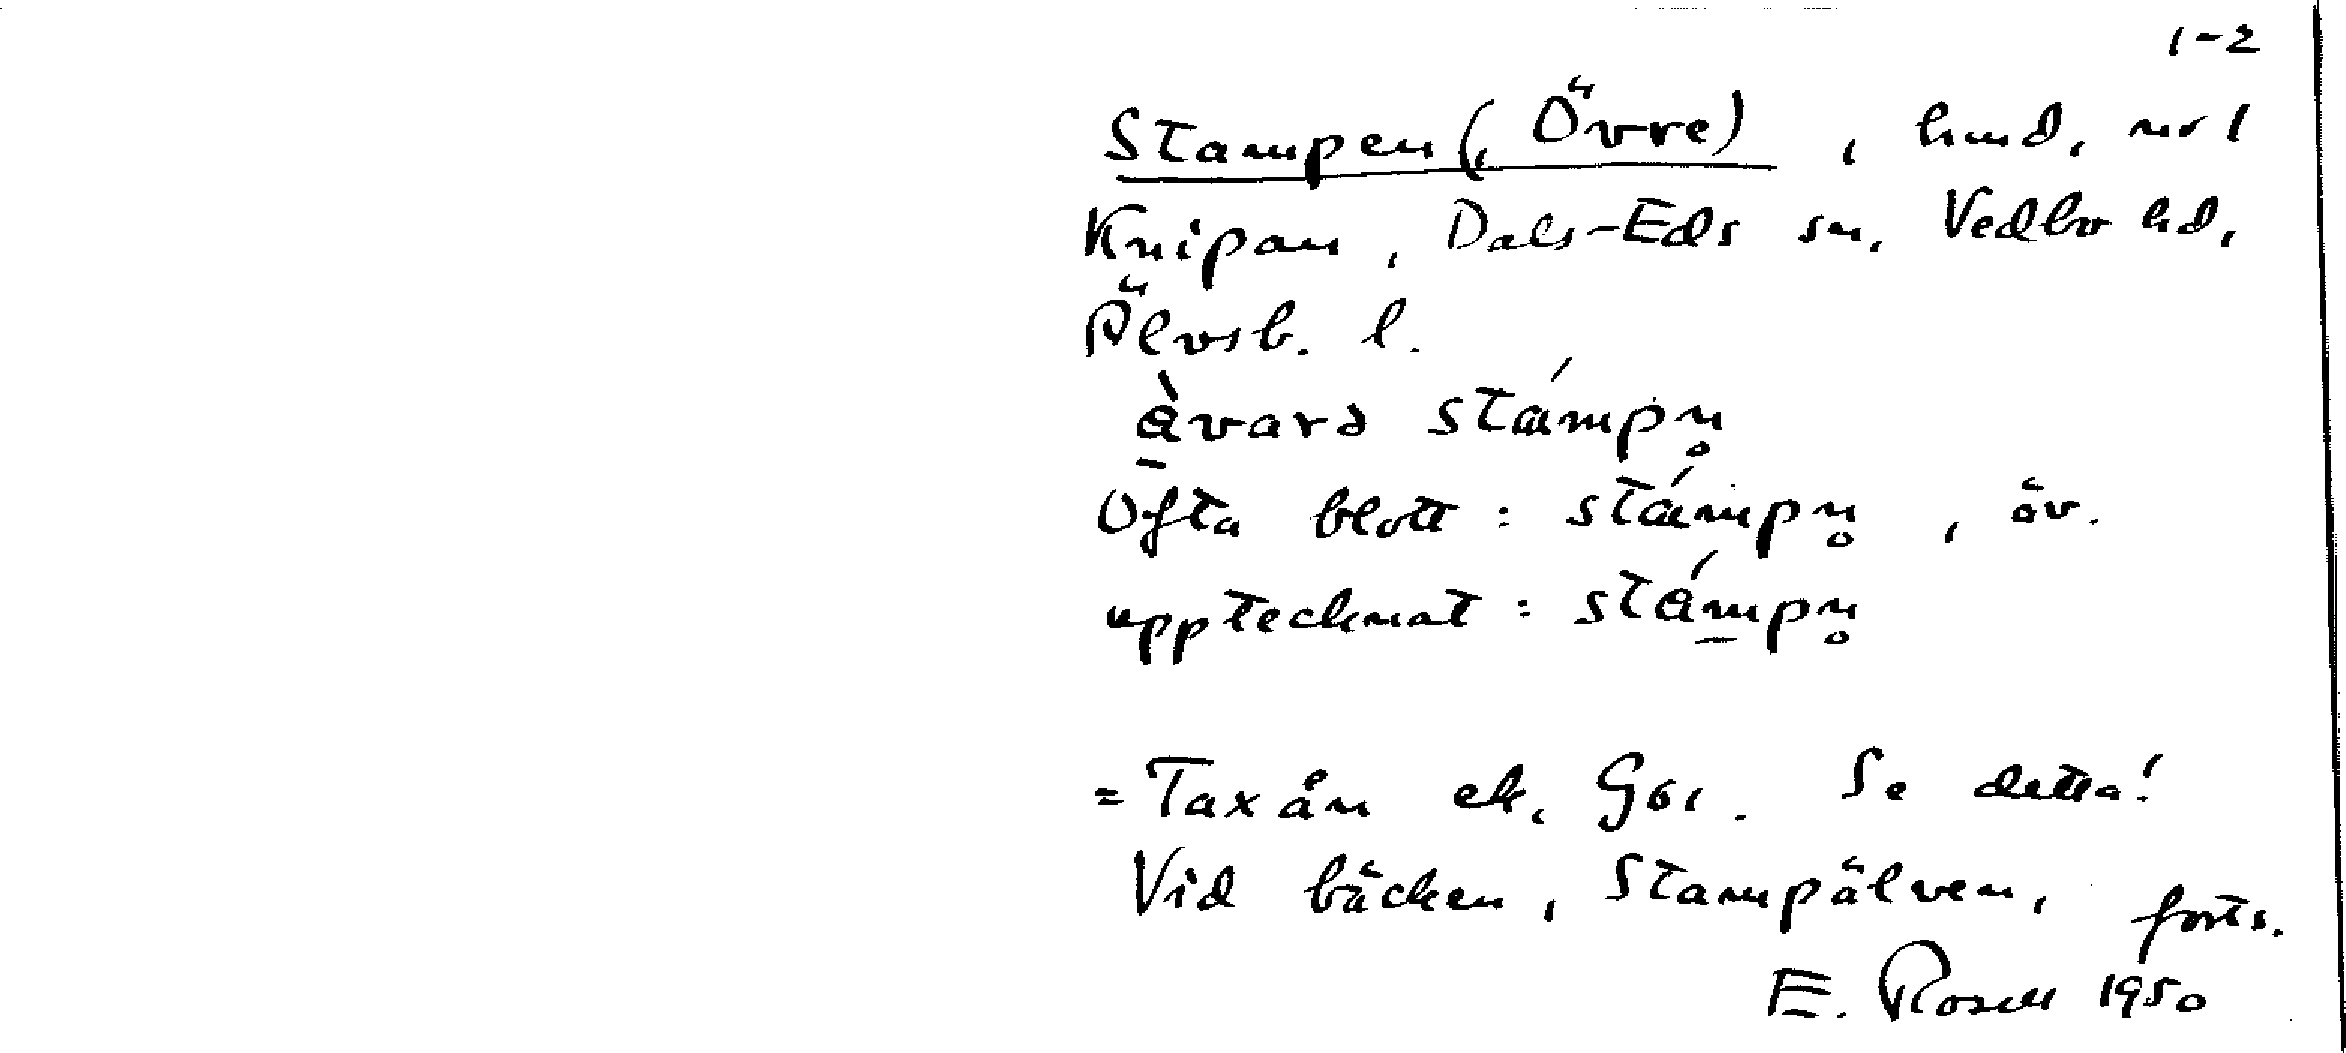 1-2
Stampen (, Övre), hmd, nr 1
Knipan, Dals-Eds sn, Vedbo hd,
Älvsb. l.
àvarə stámpn̥
Ofta blott : stámpn̥ , äv.
upptecknat : stám̲pn̥
= Taxån ek. G61. Se detta!
Vid bäcken, Stampälven, forts.
E. Rosell 1950